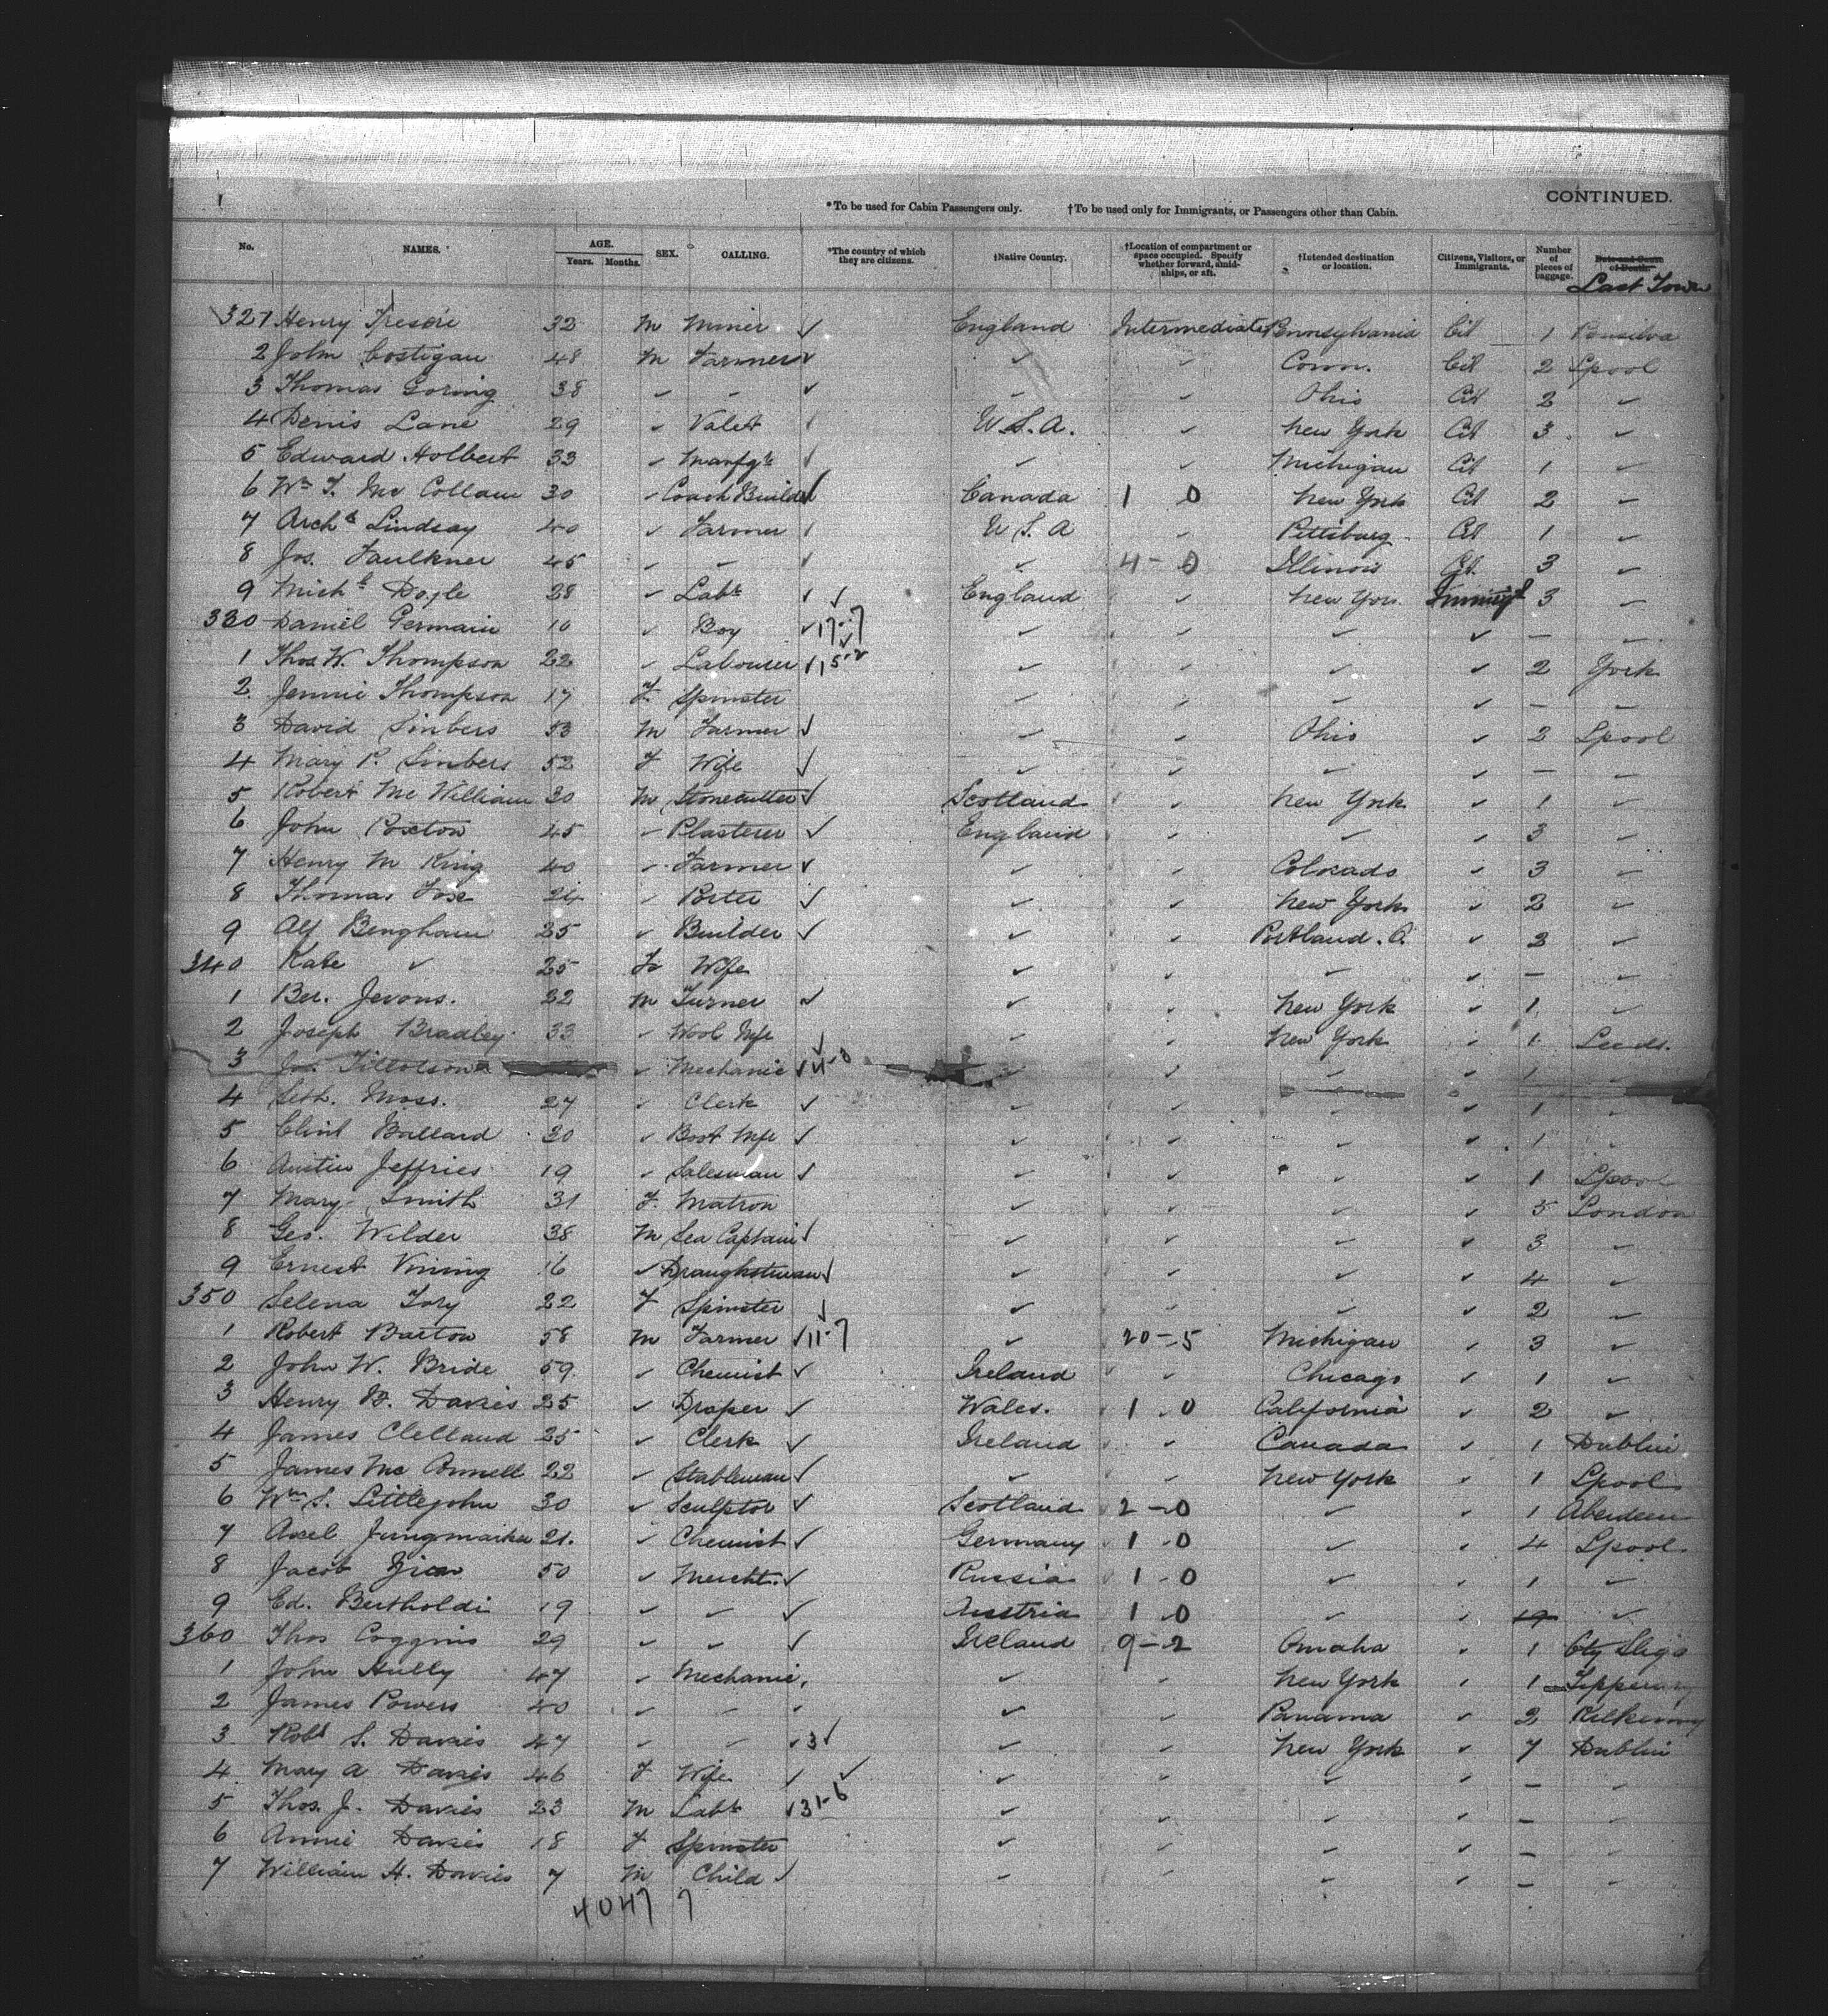 CONTINUED.
*To be used for Cabin Passengers only. †To be used only for Immigrants, or Passengers other than Cabin.
No. NAMES. AGE. Years. Months. SEX. CALLING. *The country of which they are citizens. †Native Country. †Location of compartment or space occupied. Specify whether forward, amidships, or aft. †Intended destination or location. Citizens, Visitors, or Immigrants. Number of pieces of baggage. Date and Cause of Death.
Last Town
327 Henry 32 M Miner ✓ England Intermediate Pennsylvania Cit 1 Pensilva
2 John Costigan 48 M Farmer ✓ ✓ ✓ Conn. Cit 2 Lpool
3 Thomas Goring 38 ✓ ✓ ✓ ✓ ✓ Ohio Cit 2 ✓
4 Denis Lane 29 ✓ Valet ✓ U.S.A. ✓ New York Cit 3 ✓
5 Edward Holbert 33 ✓ Manfgr ✓ ✓ ✓ Michigan Cit 1 ✓
6 Wm T. Mc Collam 30 ✓ Coach Builder ✓ Canada 1 0 New York Cit 2 ✓
7 Archd Lindsay 40 ✓ Farmer ✓ U.S.A ✓ Pittsburg Cit 1 ✓
8 Jos. Faulkner 45 ✓ ✓ ✓ ✓ 4-0 Illinois Cit 3 ✓
9 Michl Doyle 28 ✓ Labr ✓ ✓ England ✓ New York Immigt 3 ✓
330 Daniel Germain 10 ✓ Boy ✓ 17-7 ✓ ✓ ✓ ✓ — ✓
1 Thos W. Thompson 22 ✓ Labourer ✓ 15-2 ✓ ✓ ✓ ✓ 2 York
2. Jennie Thompson 17 F. Spinster ✓ ✓ ✓ ✓ — ✓
3 David Simbers 53 M Farmer ✓ ✓ ✓ Ohio ✓ 2 Lpool
4 Mary P. Simbers 52 F Wife ✓ ✓ ✓ ✓ ✓ — ✓
5 Robert Mc William 30 M Stonecutter ✓ Scotland ✓ New York ✓ 1 ✓
6 John Poxton 45 ✓ Plasterer ✓ England ✓ ✓ ✓ 3 ✓
7 Henry M King 40 ✓ Farmer ✓ ✓ ✓ Colorado ✓ 3 ✓
8 Thomas Fose 24 ✓ Porter ✓ ✓ ✓ New York ✓ 2 ✓
9 Alf Bengham 25 ✓ Builder ✓ ✓ ✓ Portland. O. ✓ 2 ✓
340 Kate ✓ 25 F Wife ✓ ✓ ✓ ✓ — ✓
1 Ber. Jevons. 22 M Turner ✓ ✓ ✓ New York ✓ 1 ✓
2 Joseph Bradley 33 ✓ Wool Mfr ✓ ✓ ✓ New York ✓ 1 Leeds.
3 Jos. Tillotson ✓ Mechanic ✓ 4-0 ✓ ✓ ✓ ✓ 1 ✓
4 Seth. Moss. 27 ✓ Clerk ✓ ✓ ✓ ✓ ✓ 1 ✓
5 Clint Ballard 30 ✓ Boot Mfr ✓ ✓ ✓ ✓ ✓ 1 ✓
6 Austin Jeffries 19 ✓ Salesman ✓ ✓ ✓ ✓ ✓ 1 Lpool
7 Mary Smith 31 F. Matron ✓ ✓ ✓ ✓ 5 London
8 Geo. Wilder 38 M Sea Captain ✓ ✓ ✓ ✓ ✓ 3 ✓
9 Ernest Vining 16 ✓ Draughstman ✓ ✓ ✓ ✓ ✓ 4 ✓
350 Selena Tory 22 F Spinster ✓ ✓ ✓ ✓ ✓ 2 ✓
1 Robert Barton 58 M Farmer ✓ 11-7 ✓ 20-5 Michigan ✓ 3 ✓
2 John W. Bride 59 ✓ Chemist ✓ Ireland ✓ Chicago ✓ 1 ✓
3 Henry B. Davies 25 ✓ Draper ✓ Wales. 1 0 California ✓ 2 ✓
4 James Clelland 25 ✓ Clerk ✓ Ireland ✓ Canada ✓ 1 Dublin
5 James Mc Connell 22 ✓ Stableman ✓ ✓ ✓ New York ✓ 1 Lpool
6 Wm S. Littlejohn 30 ✓ Sculptor ✓ Scotland 2-0 ✓ ✓ 1 Aberdeen
7 Axel 21. ✓ Chemist ✓ Germany 1-0 ✓ ✓ 4 Lpool
8 Jacob 50 ✓ Mercht. ✓ Russia 1-0 ✓ ✓ 1 ✓
9 Ed. Bertholdi 19 ✓ ✓ ✓ Austria 1-0 ✓ ✓ 19 ✓
360 Thos Coggins 29 ✓ ✓ ✓ Ireland 9-2 Omaha ✓ 1 Cty Sligo
1 John Hully 47 ✓ Mechanic. ✓ ✓ New York ✓ 1 Tipperary
2 James Powers 40 ✓ ✓ ✓ ✓ ✓ Panama ✓ 2 Kilkenny
3. Robt S. Davies 47 ✓ ✓ ✓ 3 ✓ ✓ ✓ New York ✓ 7 Dublin
4. Mary A Davies 46 F Wife ✓ ✓ ✓ ✓ ✓ ✓ — ✓
5 Thos. J. Davies 23 M Labr ✓ 31-6 ✓ ✓ ✓ ✓ — ✓
6 Annie Davies 18 F Spinster ✓ ✓ ✓ ✓ — ✓
7 William H. Davies 7 M Child ✓ ✓ ✓ ✓ ✓ — ✓
4047 7